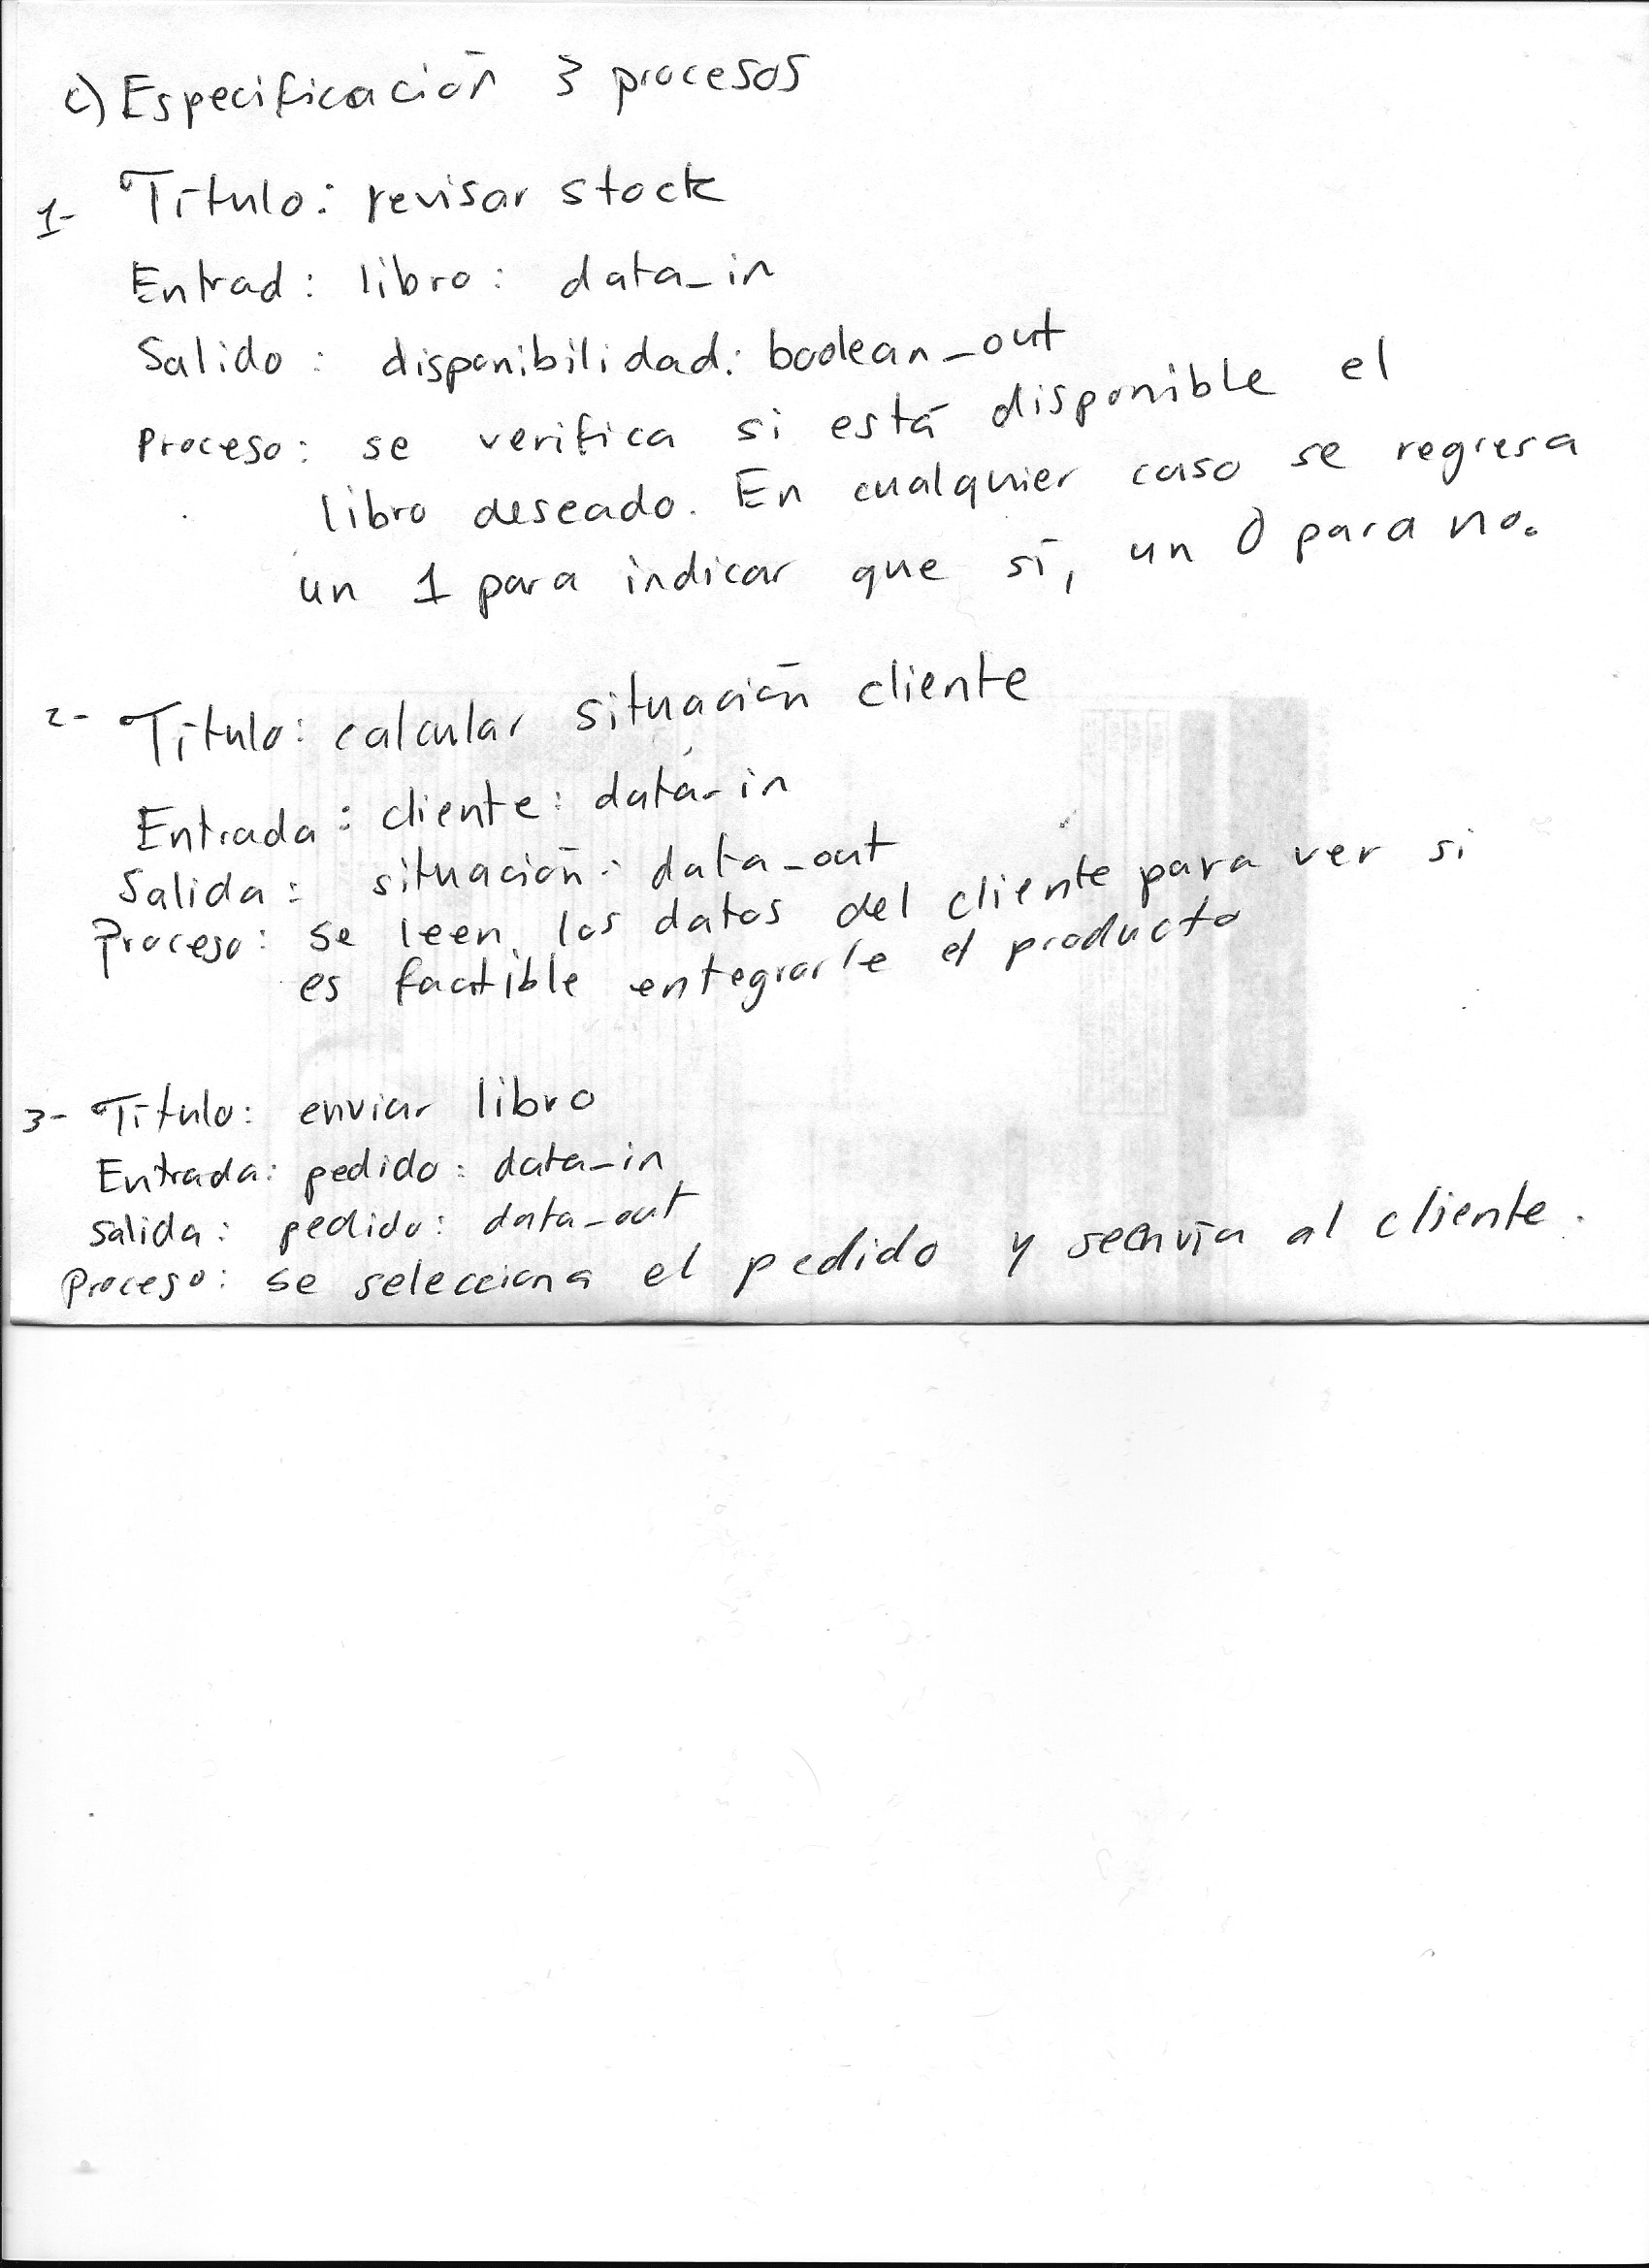 c) Especificación 3 procesos
1- Título: revisar stock
Entrad: libro: data_in
Salido: disponibilidad: boolean_out
Proceso: se verifica si está disponible el
libro deseado. En cualquier caso se regresa
un 1 para indicar que sí, un 0 para no.
2- Título: calcular situación cliente
Entrada: cliente: data_in
Salida: situación: data_out
Proceso: se leen los datos del cliente para ver si
es factible entegrarle el producto
3- Título: enviar libro
Entrada: pedido: data_in
Salida: pedido: data_out
Proceso: se selecciona el pedido y se envía al cliente.